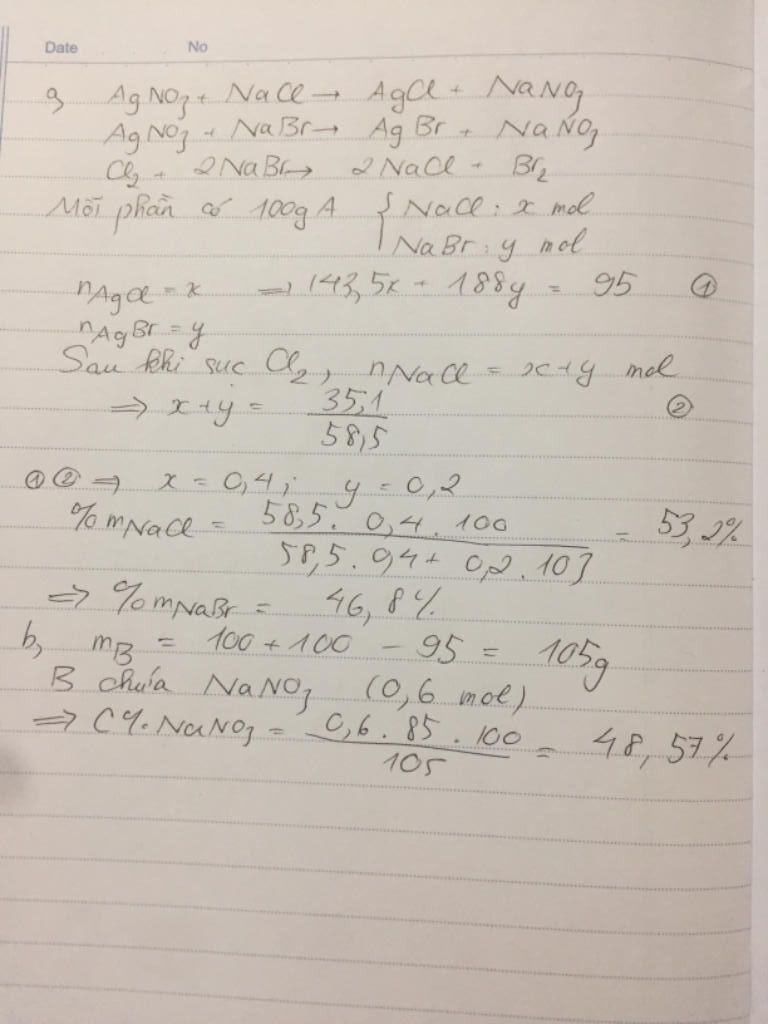 Date No
a, AgNO3 + NaCl → AgCl + NaNO3
AgNO3 + NaBr → AgBr + NaNO3
Cl2 + 2NaBr → 2NaCl + Br2
Mỗi phần có 100g A { NaCl : x mol
NaBr : y mol
nAgCl = x => 143,5x + 188y = 95 ①
nAgBr = y
Sau khi sục Cl2, nNaCl = x+y mol
=> x+y = 35,1 / 58,5 ②
①② => x = 0,4; y = 0,2
%mNaCl = 58,5 . 0,4 . 100 / 58,5 . 0,4 + 0,2 . 103 = 53,2%
=> %mNaBr = 46,8%
b, mB = 100 + 100 - 95 = 105g
B chứa NaNO3 (0,6 mol)
=> C% NaNO3 = 0,6 . 85 . 100 / 105 = 48,57%